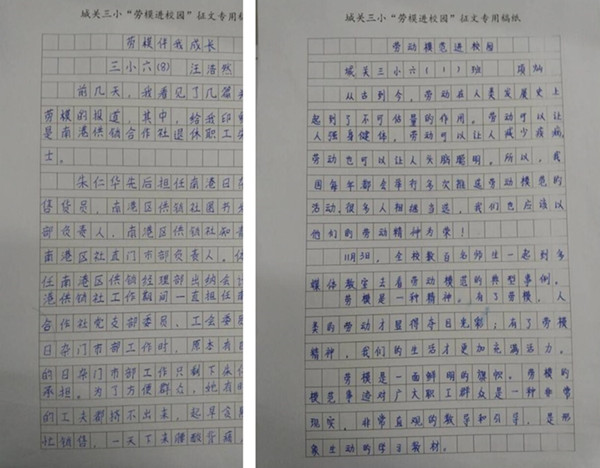 城关三小“劳模进校园”征文专用稿
劳模伴我成长
三小六(8) 汪浩然
前几天，我看见了几篇关
劳模的报道，其中，给我印
是南港供销合作社退休职工朱
士。
朱仁华先后担任南港日杂
售货员，南港区供销社图书
部负责人，南港区供销社知青
南港区社直门市部负责人。
任南港区供销社经理部出纳会
港供销社工作期间一直担任南
合作社党支部委员，工会委员
日杂门市部工作时，原本有
的日杂门市部工作只剩下朱仁
承担。为了方便群众，她有时
的工夫都挤不出来，起早贪
忙销售，一天下来腰酸背痛
城关三小“劳模进校园”征文专用稿纸
劳动模范进校园
城关三小六(1)班 项灿
从古到今，劳动在人类发展史上
起到了不可估量的作用。劳动可以让
人强身健体，劳动可以让人减少疾病，
劳动也可以让人头脑聪明。所以，我
国每年都会举行多次推选劳动模范的
活动，很多人相继当选，我们也应该以
他们的劳动精神为荣！
11月3日，全校数百名师生一起到多
媒体教室去看劳动模范的典型事例。
劳模是一种精神。有了劳模，人
类的劳动才显得夺目光彩；有了劳模
精神，我们的生活才更加充满活力。
劳模是一面鲜明的旗帜。劳模的
模范事迹对广大职工群众是一种非常
现实，非常直观的教导和引导，是形
象生动的学习教材。